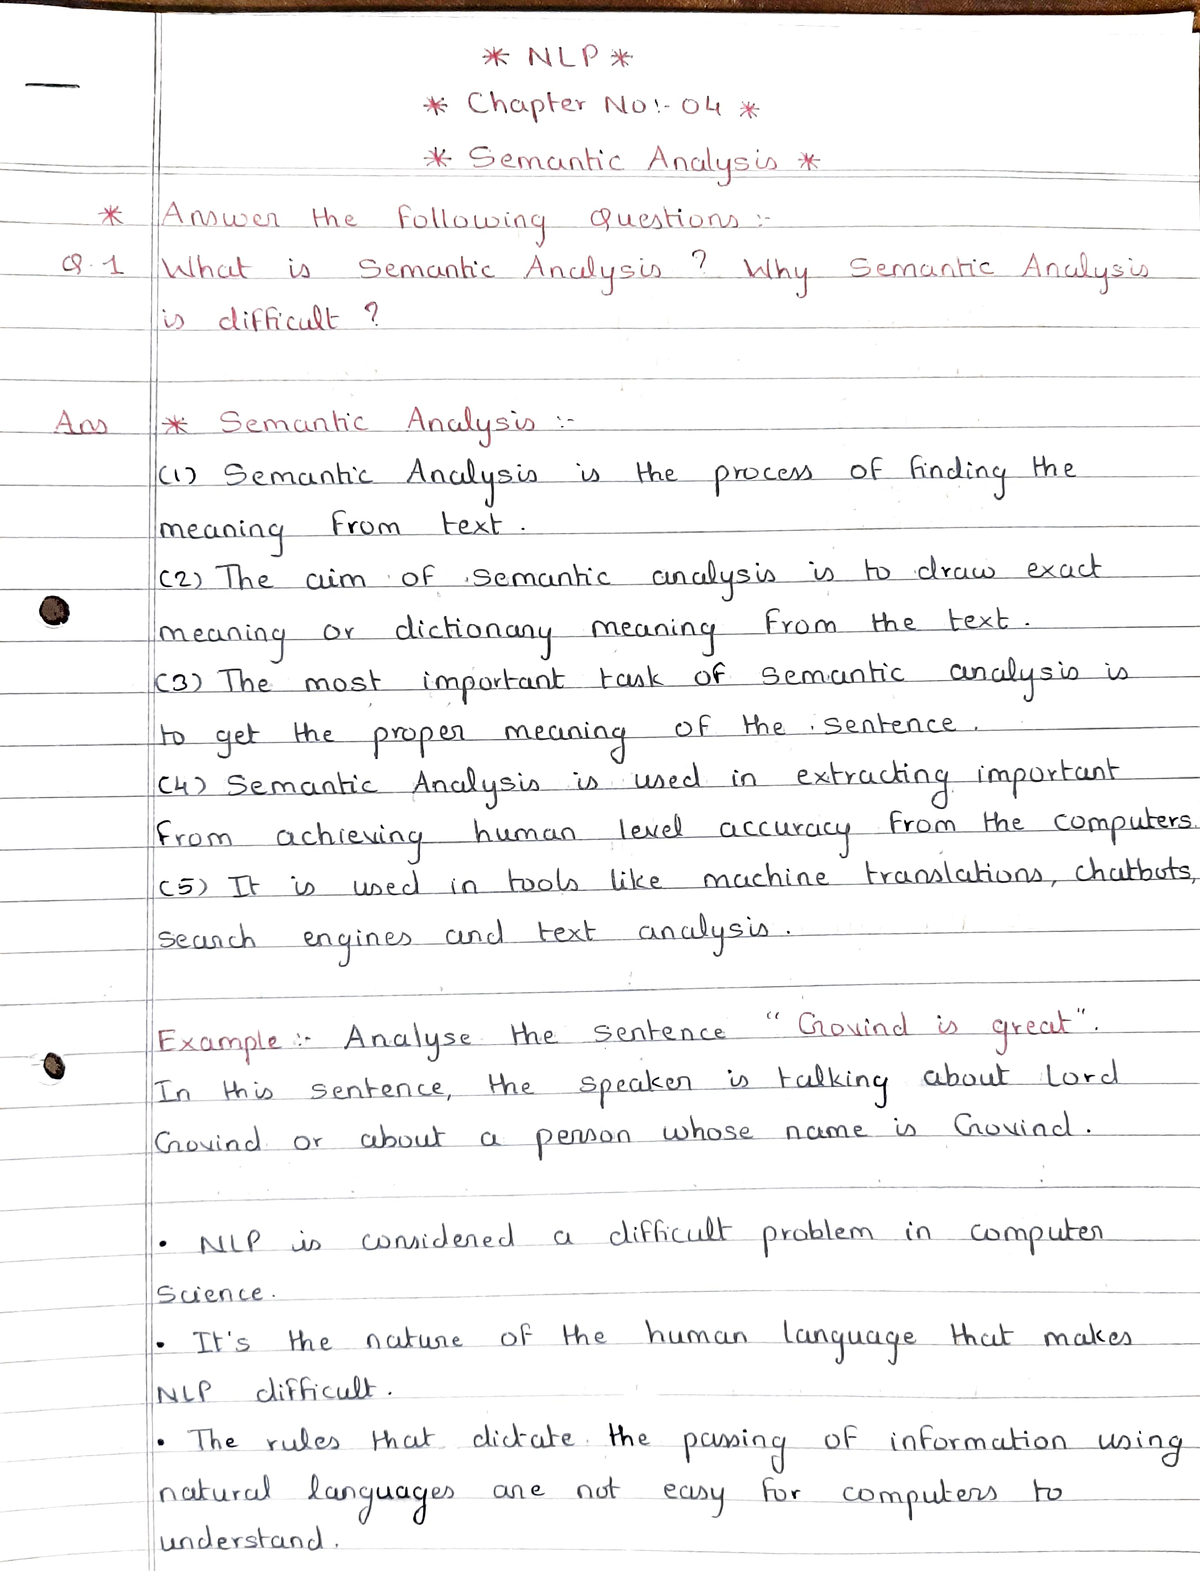 * NLP *
* Chapter No:- 04 *
* Semantic Analysis *
* Answer the following Questions :-
Q.1 What is Semantic Analysis ? Why Semantic Analysis
is difficult ?
Ans * Semantic Analysis :-
(1) Semantic Analysis is the process of finding the
meaning from text.
(2) The aim of semantic analysis is to draw exact
meaning or dictionary meaning from the text.
(3) The most important task of semantic analysis is
to get the proper meaning of the sentence.
(4) Semantic Analysis is used in extracting important
from achieving human level accuracy from the computers.
(5) It is used in tools like machine translations, chatbots,
search engines and text analysis.
Example :- Analyse the sentence "Govind is great".
In this sentence, the speaker is talking about Lord
Govind or about a person whose name is Govind.
• NLP is considered a difficult problem in computer
science.
• It's the nature of the human language that makes
NLP difficult.
• The rules that dictate the passing of information using
natural languages are not easy for computers to
understand.